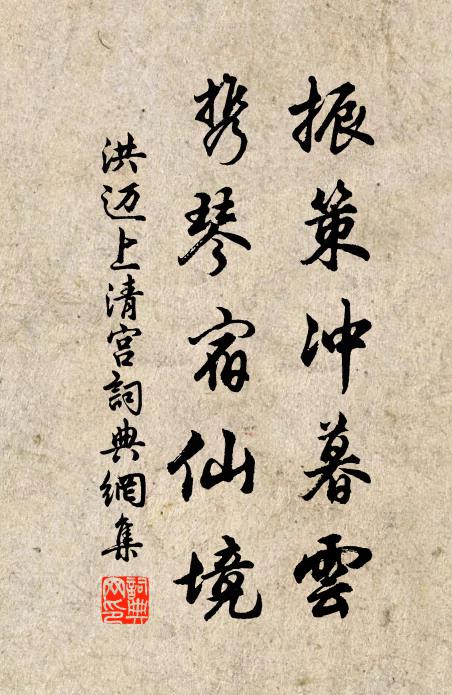 振策冲暮雲
携琴宿仙境
洪迈上清宫詞典網集
詞典网印